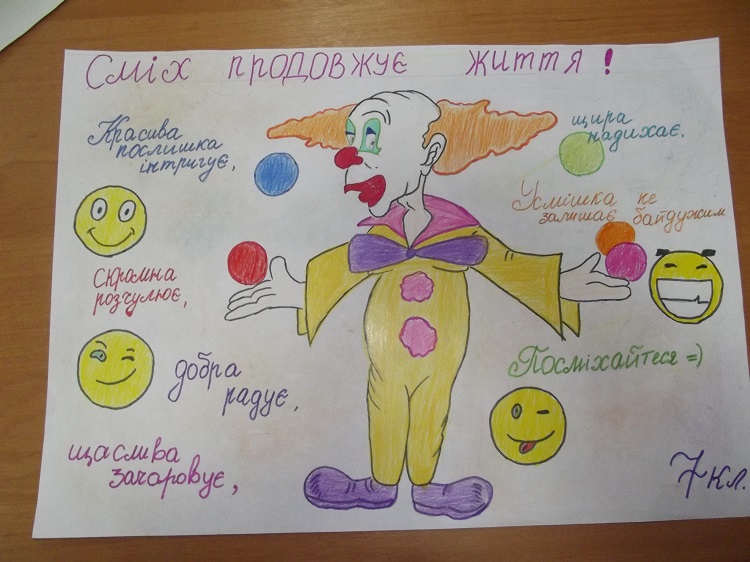 Сміх продовжує життя!
Красива
послишка
інтригує,
скромна
розчулює,
добра
радує,
щаслива
зачаровує,
щира
надихає.
Усмішка не
залишає байдужим
Посміхайтеся =)
7 кл.